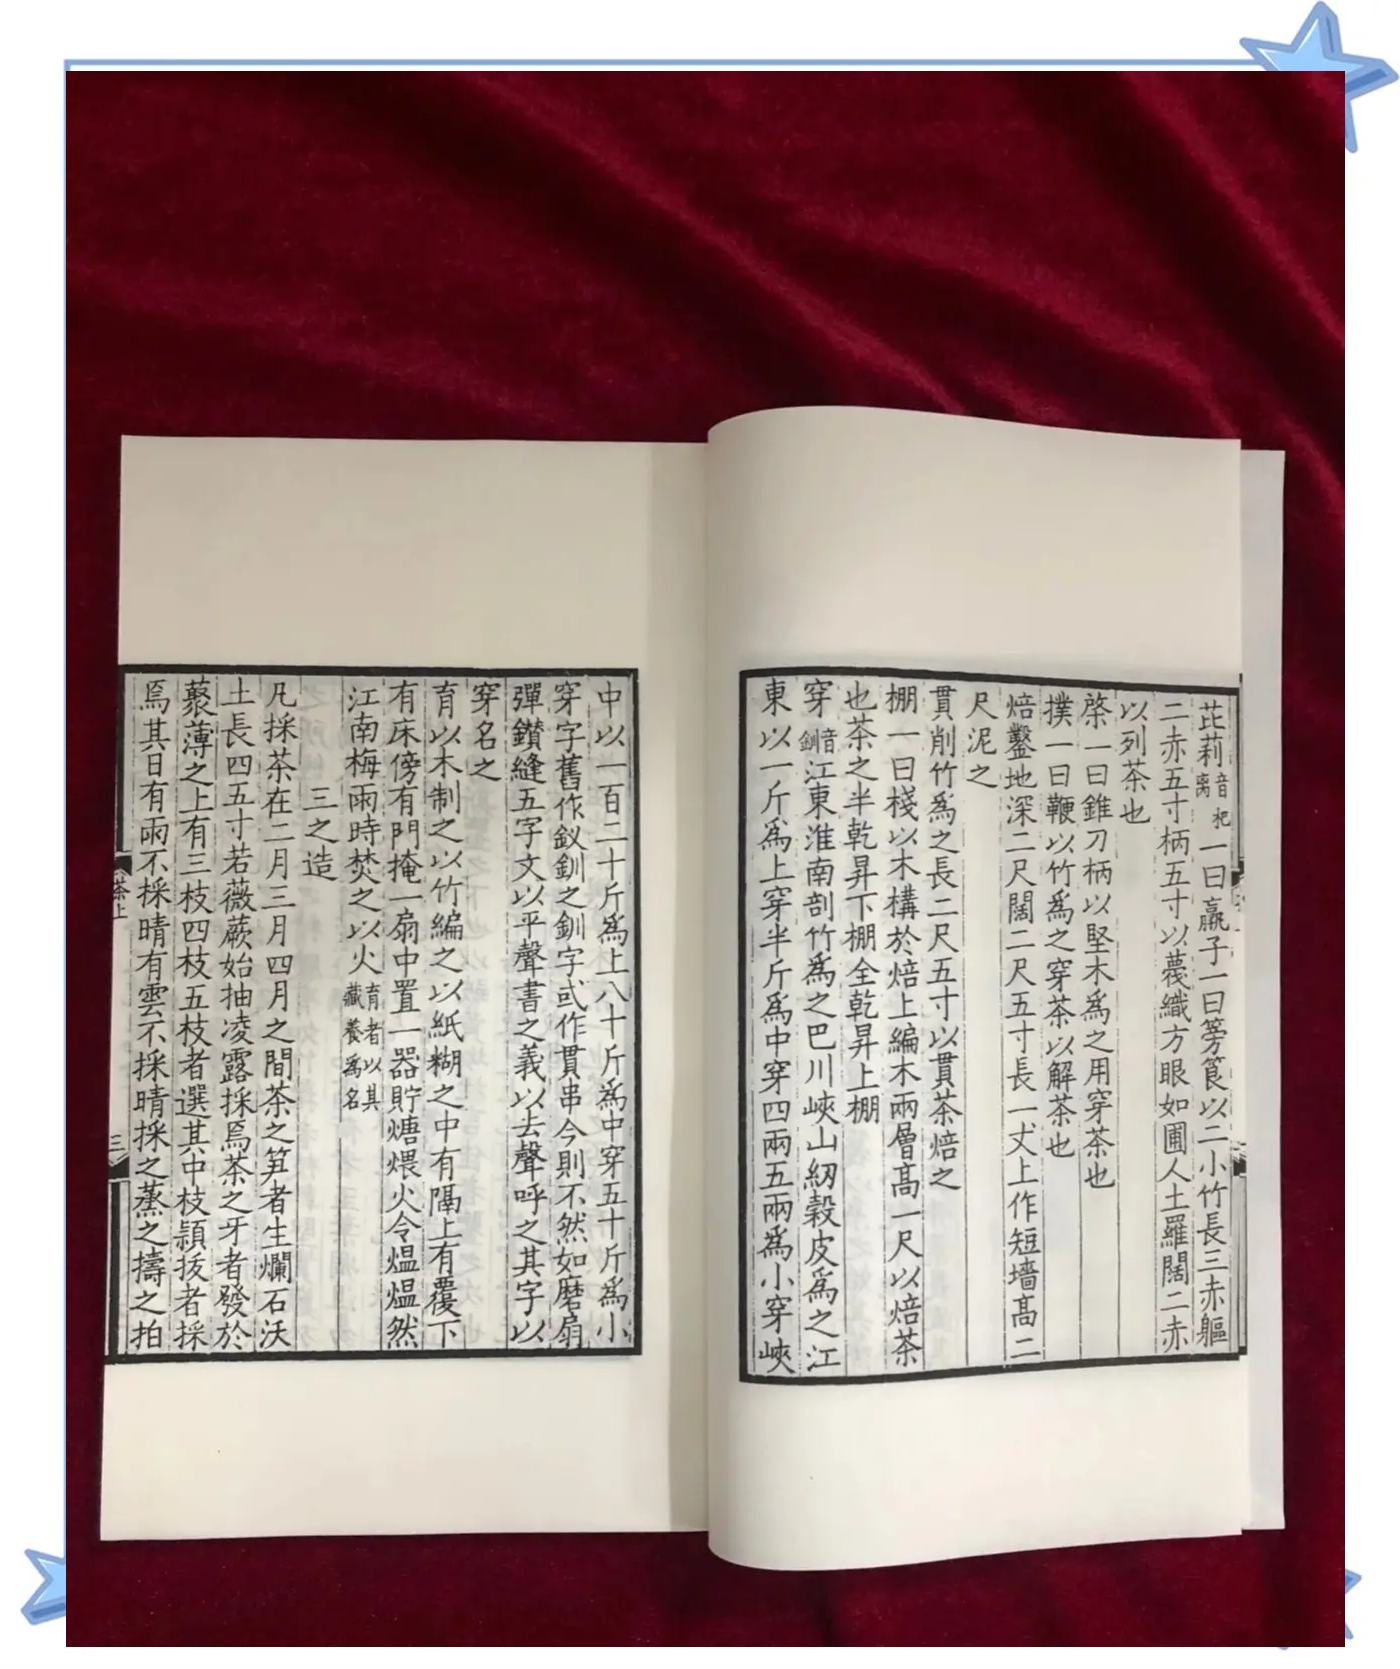 芘莉音杷离一曰羸子一曰篣筤以二小竹長三赤軀
二赤五寸柄五寸以篾織方眼如圃人土羅闊二赤
以列茶也
棨一曰錐刀柄以堅木爲之用穿茶也
撲一曰鞭以竹爲之穿茶以解茶也
焙鑿地深二尺闊二尺五寸長一丈上作短墻髙二
尺泥之
貫削竹爲之長二尺五寸以貫茶焙之
棚一曰棧以木構於焙上編木兩層髙一尺以焙茶
也茶之半乾昇下棚全乾昇上棚
穿音釧江東淮南剖竹爲之巴川峽山紉榖皮爲之江
東以一斤爲上穿半斤爲中穿四兩五兩爲小穿峽
中以一百二十斤爲上八十斤爲中穿五十斤爲小
穿字舊作釵釧之釧字或作貫串今則不然如磨扇
彈鑚縫五字文以平聲書之義以去聲呼之其字以
穿名之
育以木制之以竹編之以紙糊之中有隔上有覆下
有床傍有門掩一扇中置一器貯煻煨火令熅熅然
江南梅雨時焚之以火育者以其藏養爲名
三之造
凡採茶在二月三月四月之間茶之笋者生爛石沃
土長四五寸若薇蕨始抽凌露採焉茶之牙者發於
藂薄之上有三枝四枝五枝者選其中枝頴拔者採
焉其日有雨不採晴有雲不採晴採之蒸之擣之拍
茶上
三